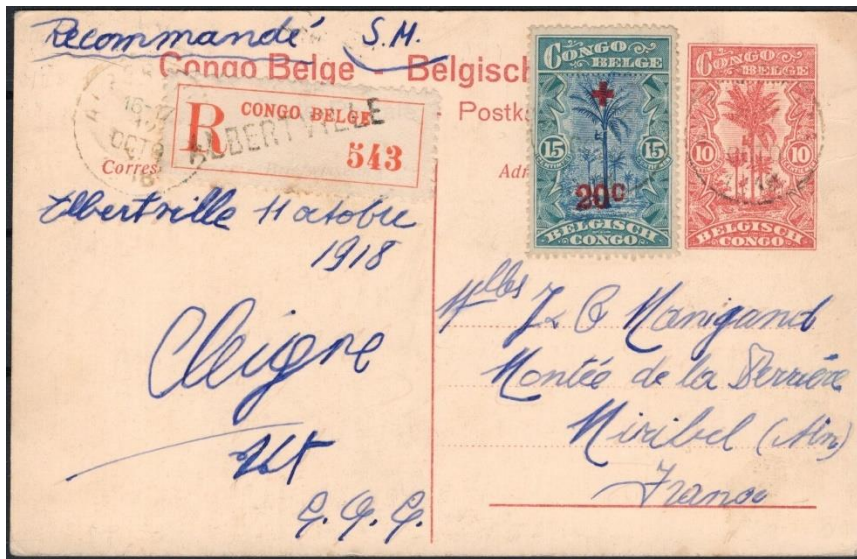 Recommandé S.M.
Congo Belge - Belgisch
Postk
R CONGO BELGE
ALBERTVILLE
543
Corres
Adr
OCT
18
CONGO BELGE
15 15
20c
BELGISCH CONGO
CONGO BELGE
10 10
BELGISCH CONGO
Albertville 11 octobre
1918
G.Q.G.
Mlles J & P Manigand
Montée de la
Miribel (Ain)
France